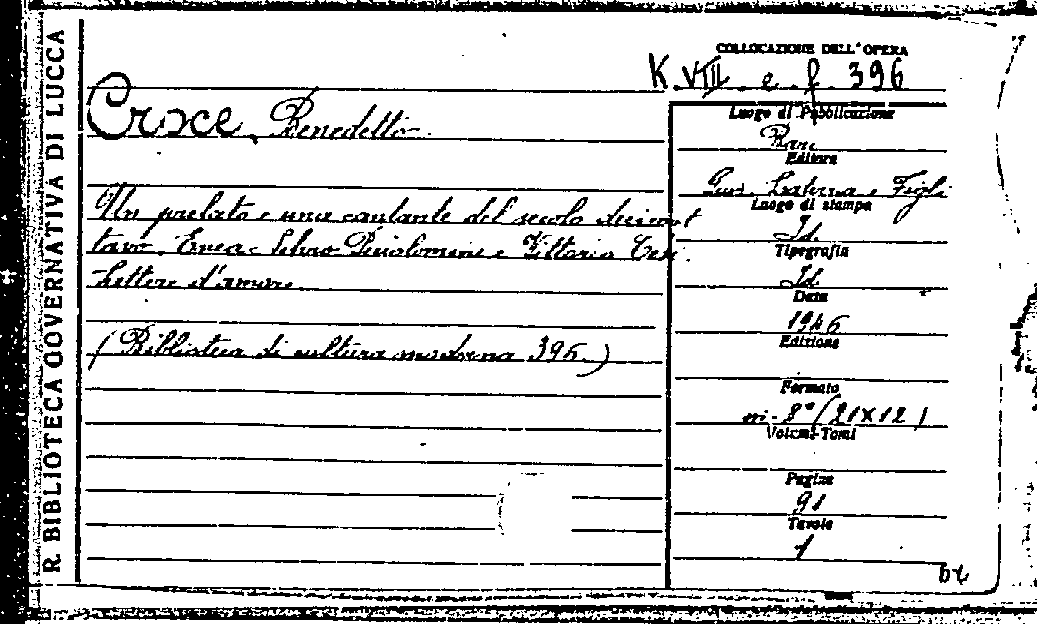 R. BIBLIOTECA GOVERNATIVA DI LUCCA
COLLOCAZIONE DELL'OPERA
K. VIII e. f. 396
Croce, Benedetto
Un prelato e una cantante del secolo decimot
tavo. Enea Silvio Piccolomini e Vittoria Tesi.
Lettere d'amore
(Biblioteca di cultura moderna 396.)
Luogo di Pubblicazione
Bari
Editore
Gius. Laterza e Figli
Luogo di stampa
Id.
Tipografia
Id.
Data
1946
Edizione
Formato
in-8° (21x12)
Volumi-Tomi
Pagine
91
Tavole
1